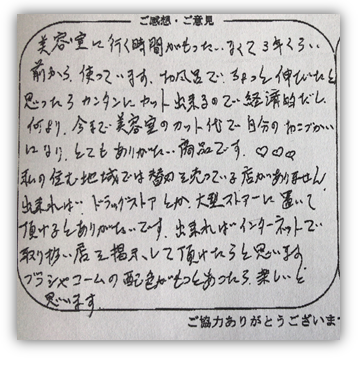 ご感想・ご意見
美容室に行く時間がもったいなくて3年くらい
前から使っています。お風呂でちょっと伸びたなと
思ったらカンタンにカット出来るので経済的だし
何より、今まで美容室のカット代で自分のおこづかい
になり、とてもありがたい商品です。♡♡♡
私の住む地域では替刃を売っている店がありません
出来れば、ドラッグストアとか、大型ストアーに置いて
頂けるとありがたいです。出来ればインターネットで
取り扱い店を掲示して頂けたらと思います
ブラシやコームの配色がもっとあったら、楽しいと
思います。
ご協力ありがとうございま